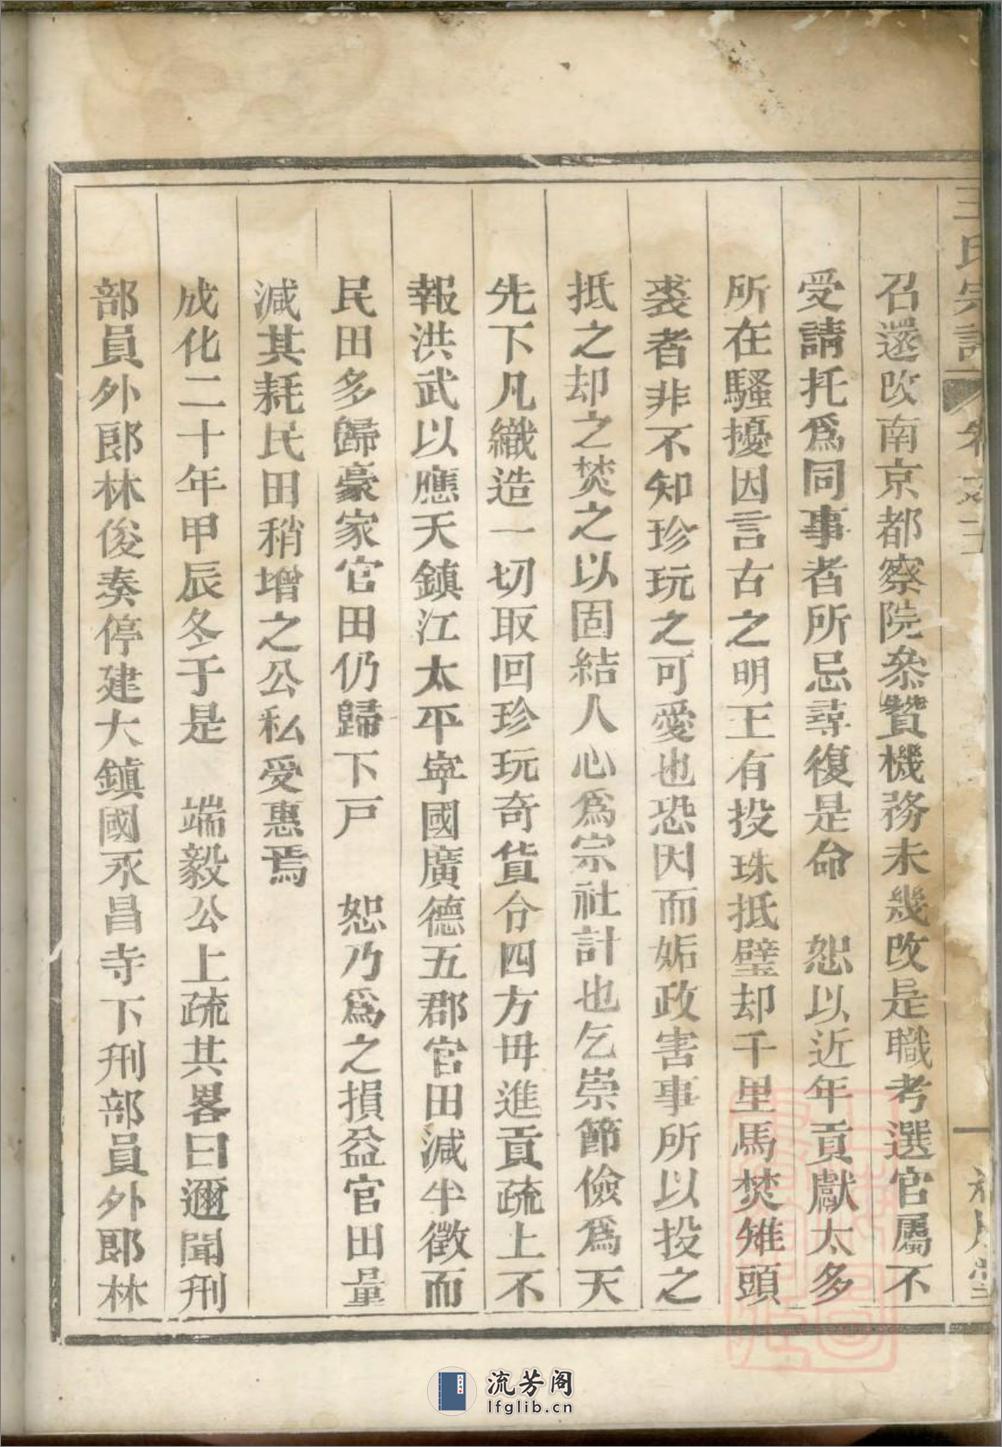 王氏宗譜 卷之十
召還改南京都察院叅贊機務未幾改是職考選官屬不
受請托爲同事者所忌尋復是命 恕以近年貢獻太多
所在騷擾因言古之明王有投珠抵璧却千里馬焚雉頭
裘者非不知珍玩之可愛也恐因而妬政害事所以投之
抵之却之焚之以固結人心爲宗社計也乞崇節儉爲天
先下凡織造一切取回珍玩奇貨令四方毋進貢疏上不
報洪武以應天鎮江太平寜國廣德五郡官田減半徵而
民田多歸豪家官田仍歸下戸 恕乃爲之損益官田量
減其耗民田稍增之公私受惠焉
成化二十年甲辰冬于是 端毅公上疏其畧曰邇聞刑
部員外郎林俊奏停建大鎮國永昌寺下刑部員外郎林
流芳阁
lfglib.cn